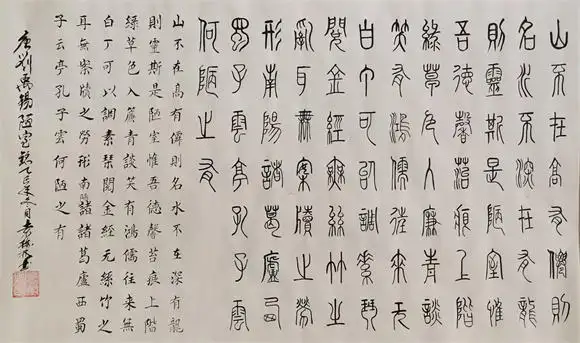 山不在高有僊則
名水不深在有龍
則靈斯是陋室惟
吾德馨苔痕上階
綠草色入簾青談
笑有鴻儒往來无
白丁可以調素琴
閱金經無絲竹之
亂耳無案牘之勞
形南陽諸葛廬西
蜀子雲亭孔子雲
何陋之有
山不在高有僊則名水不在深有龍
則靈斯是陋室惟吾德馨苔痕上階
綠草色入簾青談笑有鴻儒往來無
白丁可以調素琴閱金經无絲竹之
耳無案牘之勞形南陽諸諸葛廬西蜀
子云亭孔子雲何陋之有
唐劉禹錫陋室銘乙未月書